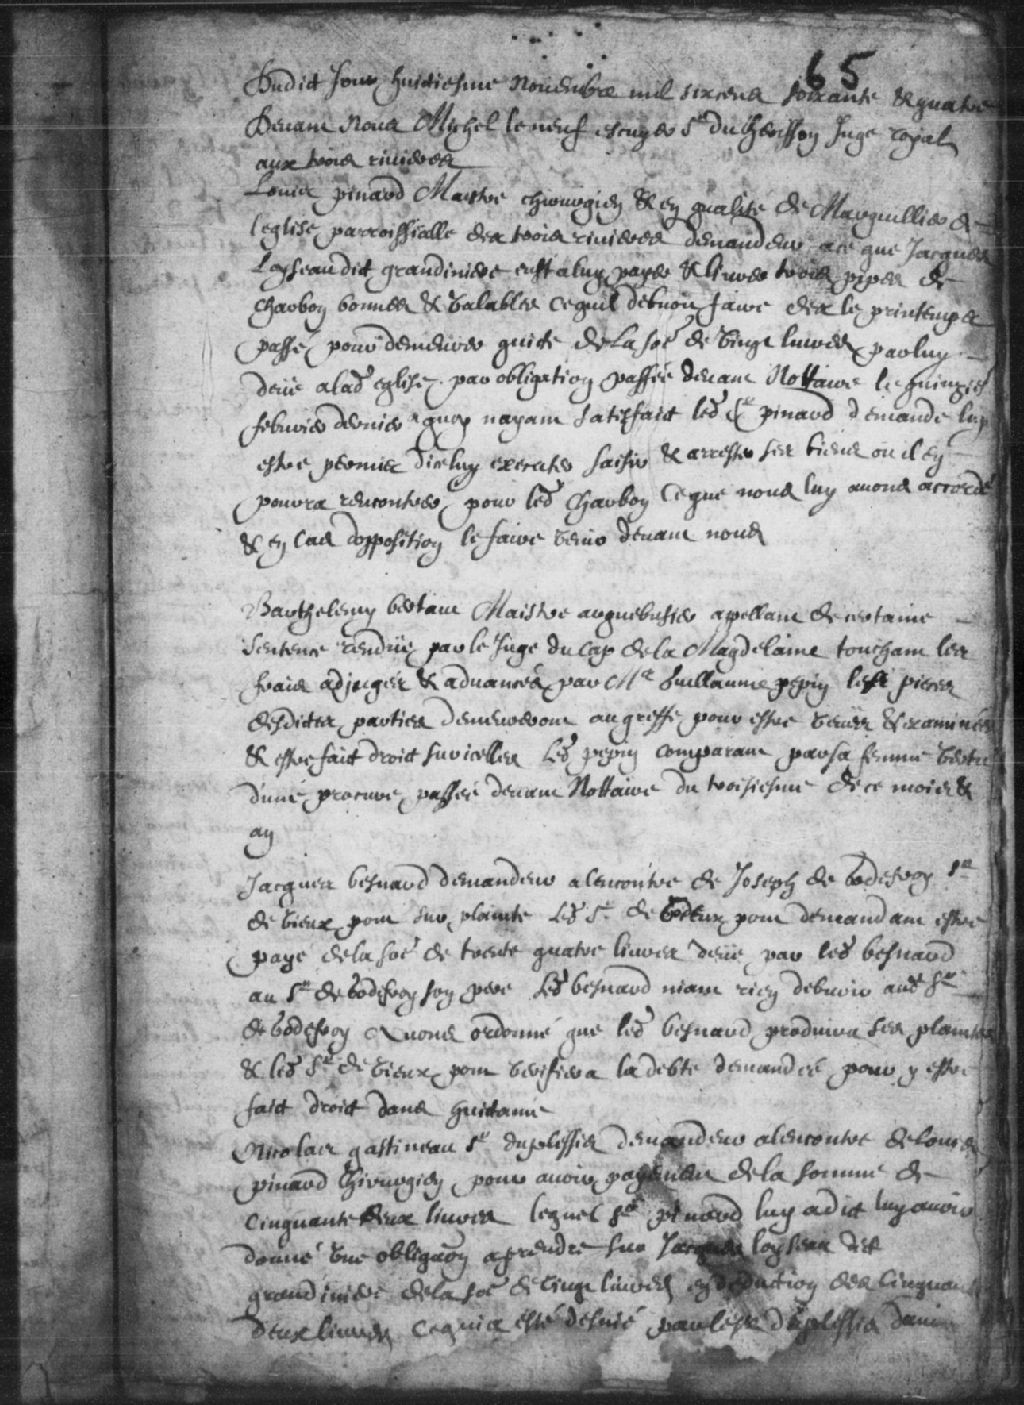 65
Dudict Jour huictiesme Novembre mil sixcens soixante & quatre
Devant Nous Michel leneuf escuyer Sr du herisson Juge royal
aux trois rivieres
Louis pinard Maistre chirurgien & en qualité de Marguillier de
leglise parroissialle des trois rivieres demandeur ace que Jacques
Loyseau dit grandiniere payer & livrer trois pipes de
charbon bonnes & valables cequil debvoit faire des le printemps
passé pour demeurer quitte de la soe de vingt livres par luy
deüe a lad eglise par obligation passée devant Nottaire le quinzies
febvrier dernier aquoy nayant satisfaict led Sr pinard demande luy
estre permis dicelluy executer saisir & arrester ses biens ou il en
pourra rencontrer pour led charbon Ceque nous luy avons accordé
& en Cas dopposition le faire venir devant nous
Barthelemy bertaut Maistre arquebusier apellant de certaine
sentence rendüe par le Juge du Cap de la Magdelaine touchant les
frais adjugez & advancés par Me Guillaume pepin les pieces
desdictes parties demeureront au greffe pour estre veües & examinées
& estre fait droict sur icelles Led pepin comparant par sa femme vertu
dune procure passée devant Nottaire du troisiesme de ce mois &
an
Jacques besnard demandeur alencontre de Joseph de Godefroy Sr
de vieux pont sur plainte Led Sr de vieux pont demandant estre
payé de la soe de trente quatre livres deüe par led besnard
au Sr de Godefroy son pere Led besnard niant rien debvoir aud Sr
de Godefroy Avons ordonné que led besnard produira ses plaintes
& led Sr de vieux pont verifiera la debte demandée pour y estre
fait droict dans huictaine
Nicolas gastineau Sr duplessis demandeur alencontre de Louis
pinard Chirurgien pour avoir payement de la somme de
Cinquante deux livres lequel Sr pinard luy a dit luy avoir
donné une obligaon a prendre sur Jacques loyseau dit
grandiniere de la soe de vingt livres en deduction des Cinquante
deux livres Ce qui a esté desnié par led Sr duplessis